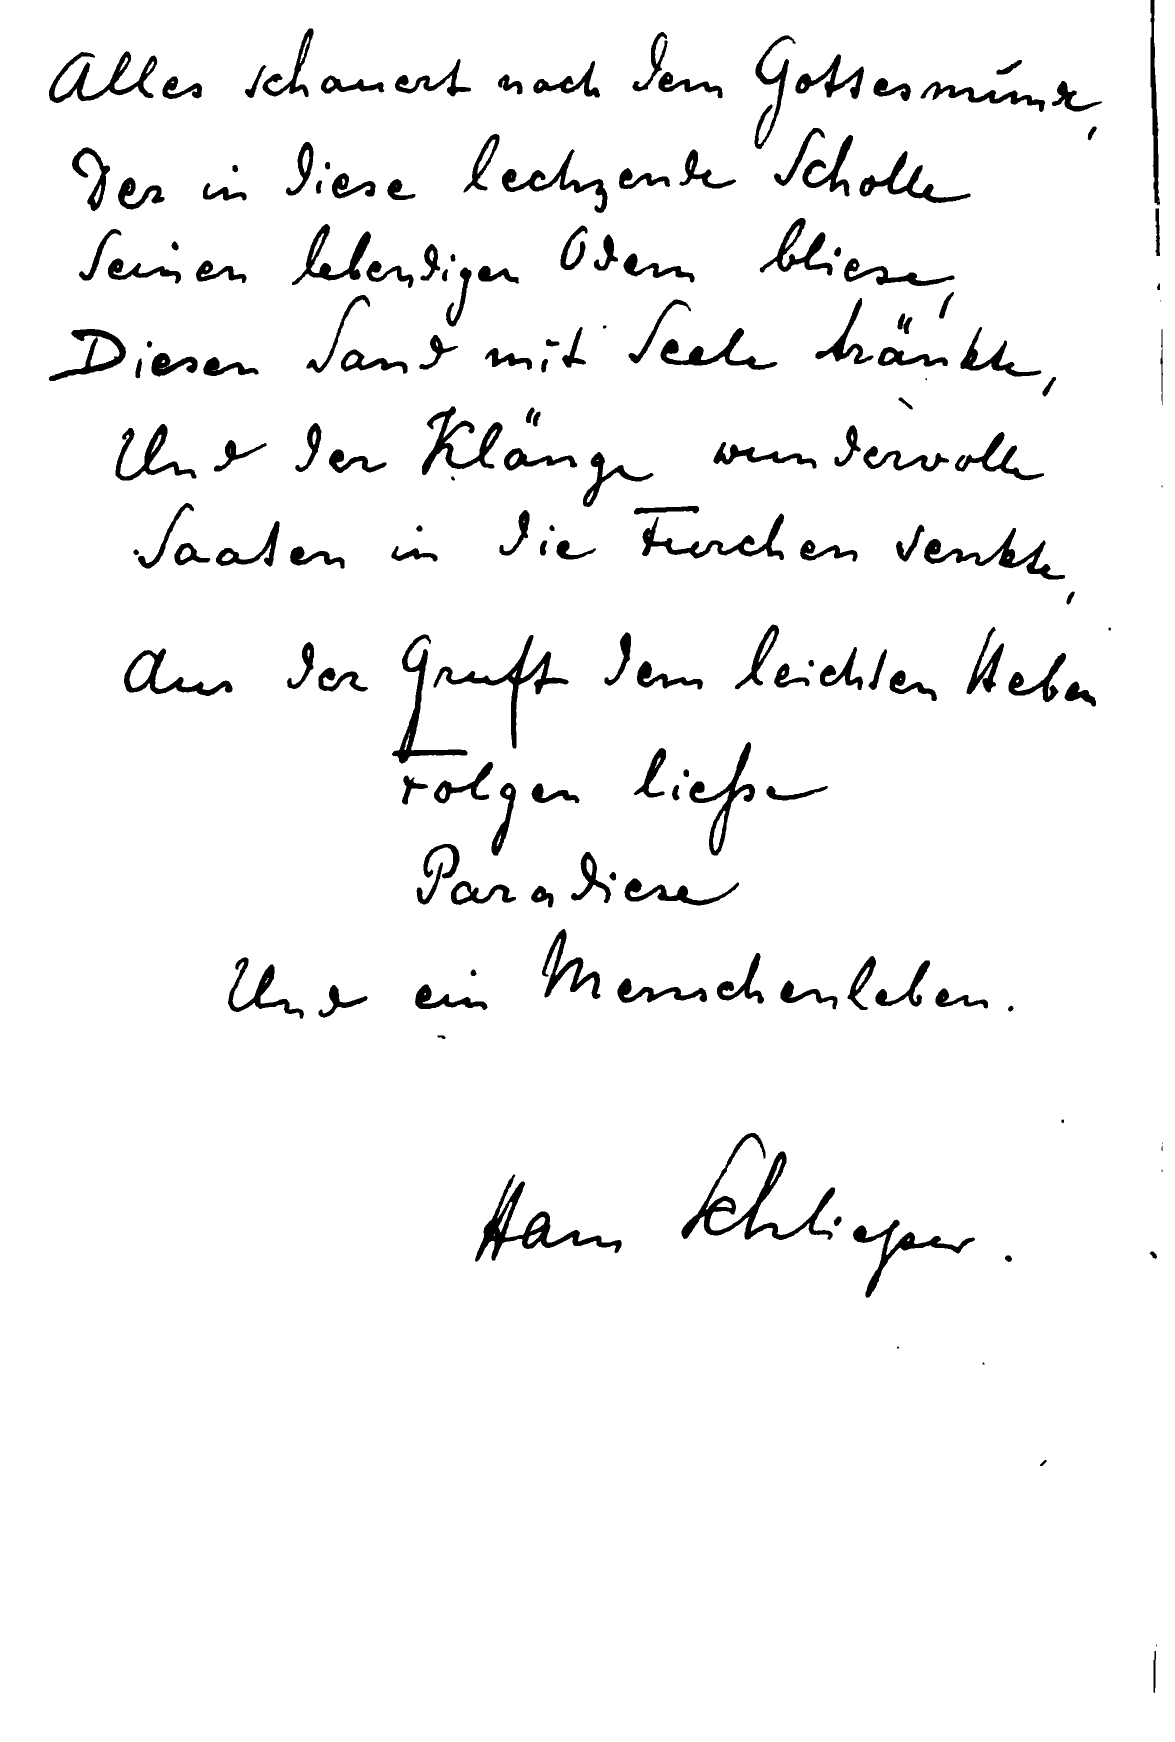 Alles schauert nach dem Gottesmunde,
Der in diese lechzende Scholle
Seinen lebendigen Odem bliese,
Diesen Sand mit Seele tränkte,
Und der Klänge wundervolle
Saaten in die Furchen senkte,
Aus der Gruft dem leichten Heben
Folgen ließe
Paradiese
Und ein Menschenleben.
Hans Schlieper.